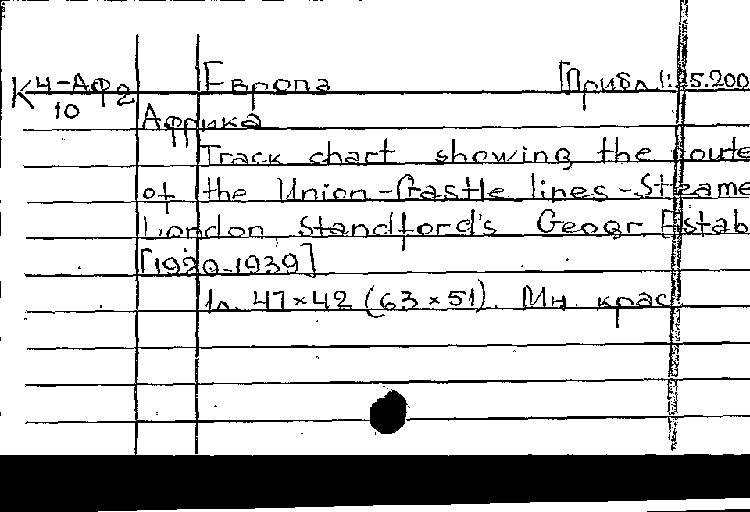 К 4-Афр Европа [Прибл 1:25.200
10
Африка
Track chart showing the route
of the Union-Castle lines-Steame
London Standford's Geogr Estab
[1920-1939]
1л. 47×42 (63×51). Мн. крас